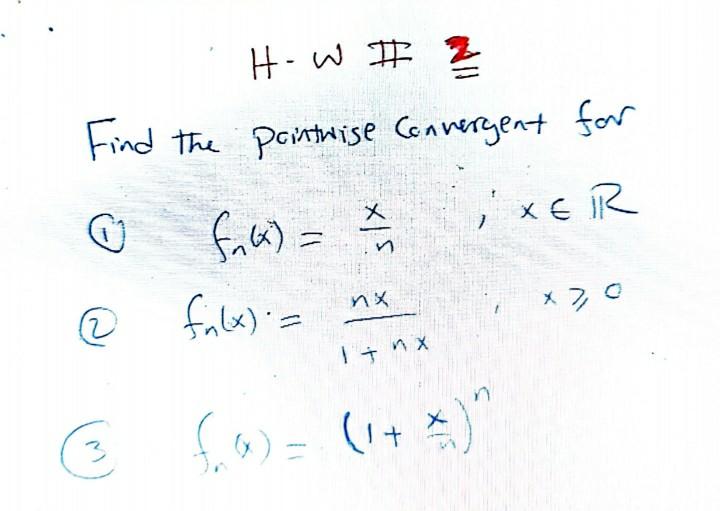 H-W # 2
Find the pointwise Convergent for
① fₙ(x) = x/n , x ∈ ℝ
② fₙ(x) = nx/(1+nx) , x ⩾ 0
③ fₙ(x) = (1 + x/n)ⁿ